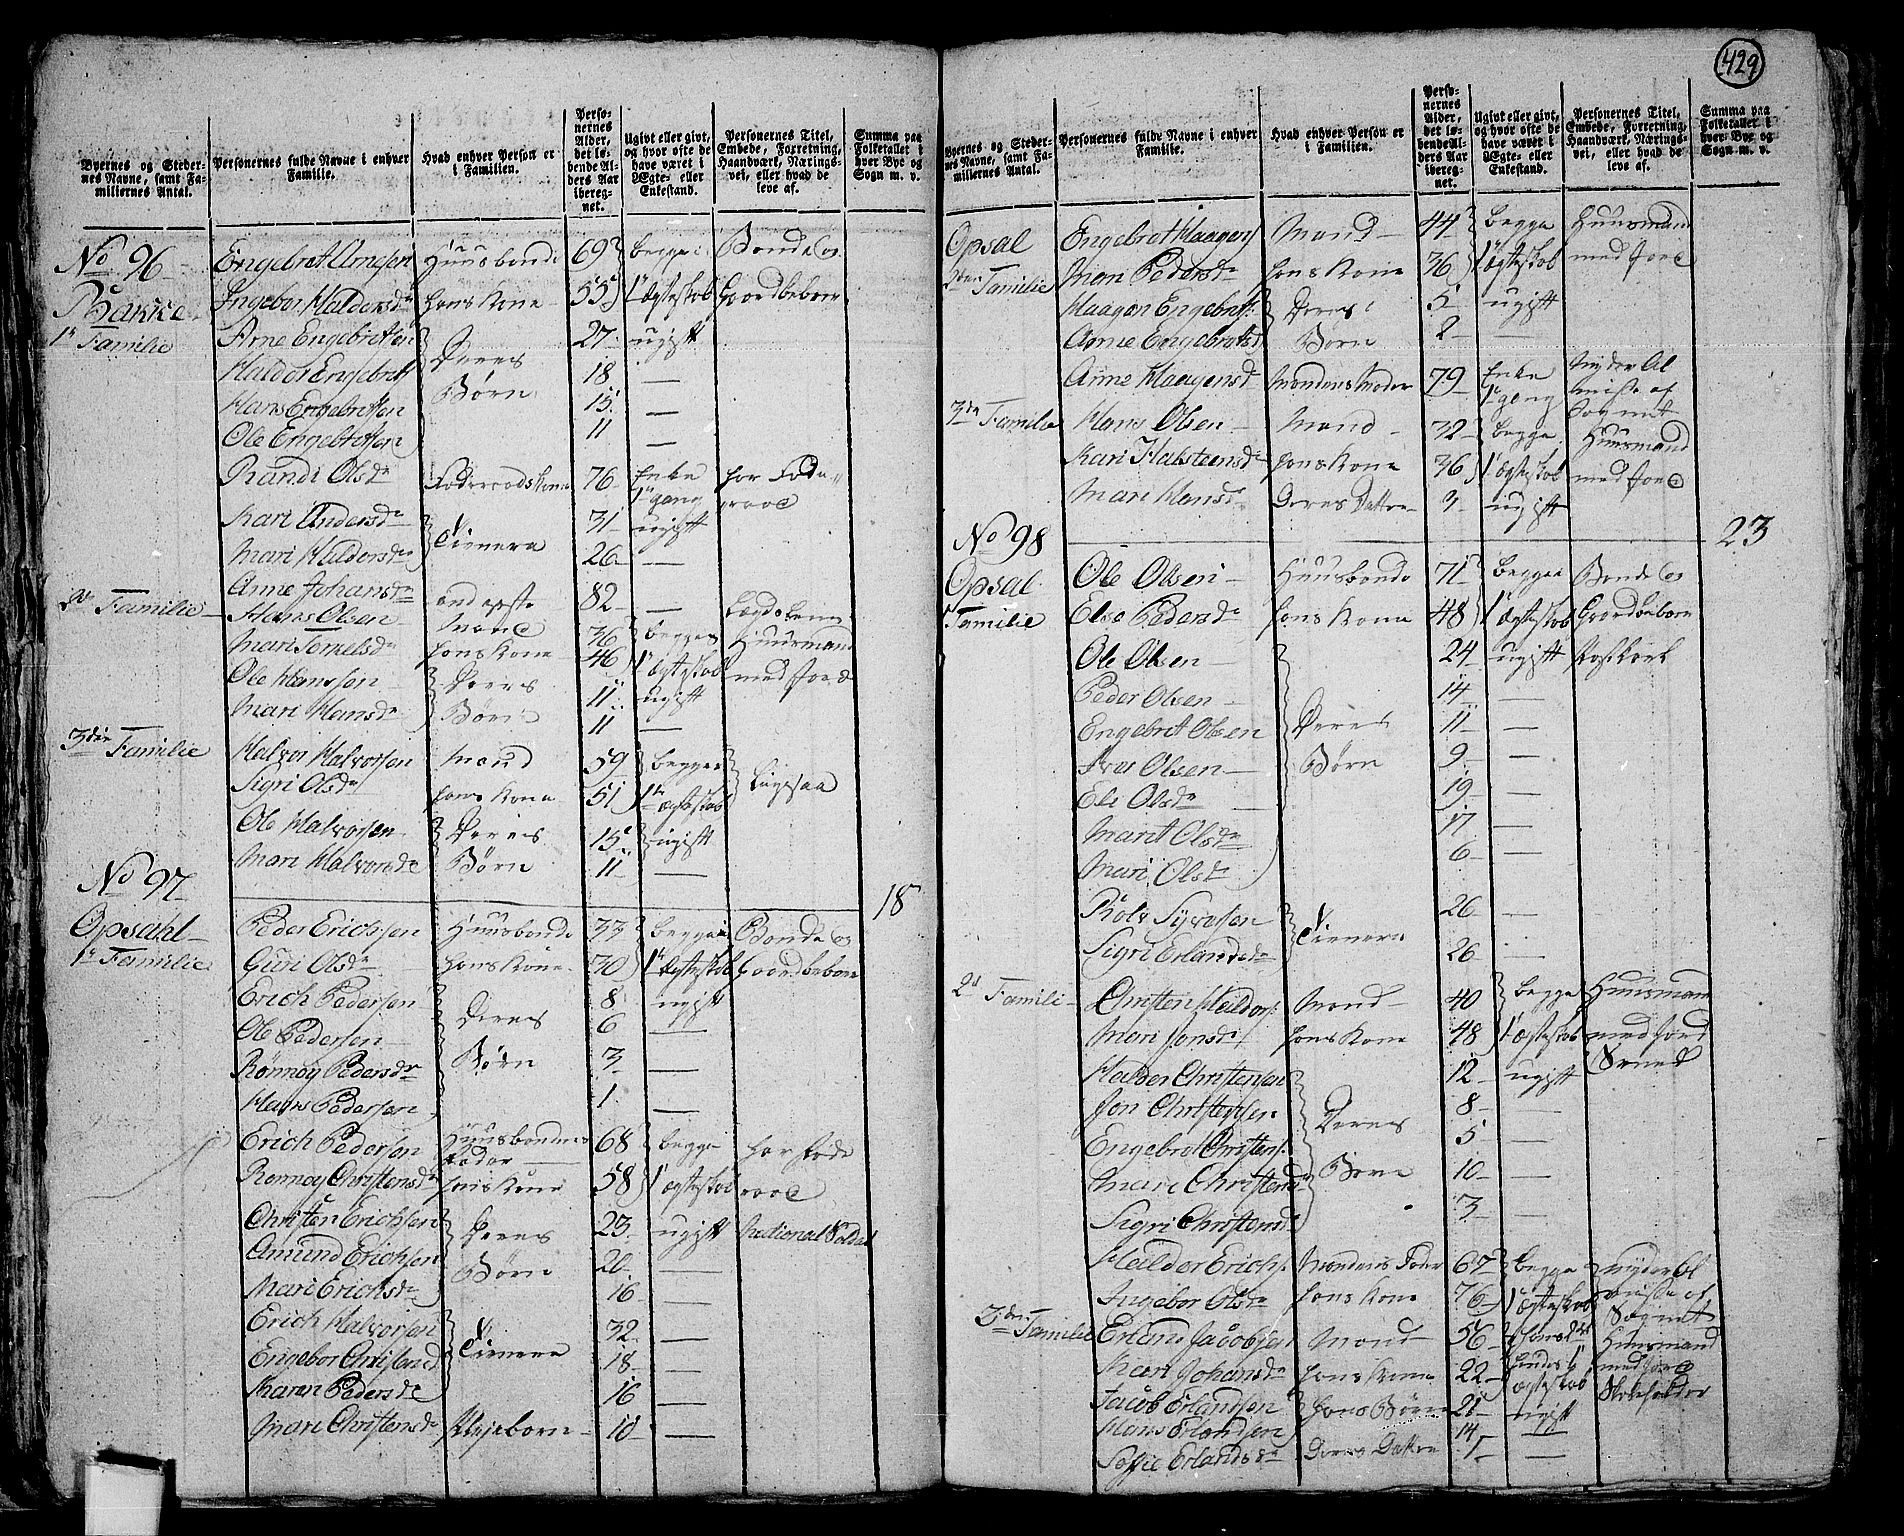 429
Byernes og Stedernes Navne, samt Familiernes Antal.
Personernes fulde Navne i enhver Familie.
Hvad enhver Person er i Familien.
Personernes Alder, det løbende Alders Aar iberegnet.
Ugivt eller givt, og hvor ofte de have været i Ægte- eller Enkestand.
Personernes Titel, Embede, Forretning, Haandværk, Næringsvei, eller hvad de leve af.
Summa paa Folketallet i hver Bye og Sogn m. v.
No 96 Engebret Arnesen Huusbonde 69 begge i Bonde og
Bakke Ingebor Haldorsdr hans Kone 55 1te Ægteskab Gaardbeboer
1te Familie Arne Engebretsen Deres 27 ugift
Haldor Engebrets Børn 18 —
Hans Engebretsen 15 —
Ole Engebretsen 11 —
Randi Olsdr Føderaadskone 76 Enke 1te gang har Føderaad
Kari Andersdr Tienere 31 ugift
Mari Haldorsdr 26 —
Anne Johansdr 82 — Lægdslem
2de Familie Hans Olsen Mand 36 begge i Huusmand
Mari Torkelsdr hans Kone 46 1te Ægteskab med Jord
Ole Hansen Deres 11 ugift
Mari Hansdr Børn 11 —
3die Familie Halvor Halvorsen Mand 59 begge i
Sigri Olsdr hans Kone 51 1te Ægteskab ligesaa
Ole Halvorsen Deres 15 ugift
Mari Halvorsdr Børn 11 —
18
No 97
Opsahl Peder Erichsen Huusbonde 33 begge i Bonde og
1te Familie Guri Olsdr hans Kone 30 1te Ægteskab Gaardbeboer
Erich Pedersen Deres 8 ugift
Ole Pedersen 6 —
Rønnoy Pedersdr Børn 3 —
Hans Pedersen 1 —
Erich Pedersen Huusbondens Fader 68 begge har Føde
Rønnoy Christensdr hans Kone 58 1te Ægteskab raad
Christen Erichsen Deres 23 ugift National Soldat
Amund Erichsen Børn 20 —
Mari Erichsdr 16 —
Erich Halvorsen Tienere 32 —
Engebor Christensd 18 —
Karen Pedersdr 16 —
Mari Christensdr Plejebarn 10 —
Byernes og Stedernes Navne, samt Familiernes Antal.
Personernes fulde Navne i enhver Familie.
Hvad enhver Person er i Familien.
Personernes Alder, det løbende Alders Aar iberegnet.
Ugivt eller givt, og hvor ofte de have været i Ægte- eller Enkestand.
Personernes Titel, Embede, Forretning, Haandværk, Næringsvei, eller hvad de leve af.
Summa paa Folketallet i hver Bye og Sogn m. v.
Opsal Engebret Haagens Mand 44 begge Huusmand
2den Familie Mari Pedersdr hans Kone 36 1te Ægteskab med Jord
Haagen Engebrets Deres 5 ugift
Anne Engebretsd Børn 2 —
Anne Haagensd Mandens Moder 79 Enke 1te gang Nyder Almisse af Sognet
3die Familie Hans Olsen Mand 32 begge Huusmand
Kari Halsteensdr hans Kone 36 1te Ægteskab med Jord
Mari Hansdr Deres Datter 3 ugift
23
No 98
Opsal Ole Olsen Huusbonde 71 begge Bonde og
1te Familie Else Pedersdr hans Kone 48 1te Ægteskab Gaardbeboer
Ole Olsen 24 ugift
Peder Olsen 14 —
Engebret Olsen Deres 11 —
Iver Olsen Børn 9 —
Eli Olsdr 19 —
Marit Olsdr 17 —
Mari Olsdr 6 —
Rolv Syversen Tienere 26 —
Sigri Erlandsdr 26 —
2d Familie Christen Haldors Mand 40 begge Huusmand
Mari Jonsdr hans Kone 48 1te Ægteskab med Jord
Haldor Christensen 12 ugift Smed
Jon Christensen Deres 8 —
Engebret Christens 5 —
Mari Christensd Børn 10 —
Sigri Christensd 3 —
Haldor Erichs Mandens Fader 67 begge Nyder Al
Ingebor Olsdr hans Kone 76 1te Ægteskab misse af Sognet
3die Familie Erland Jacobsen Mand 56 hans 2det Huusmand
Mari Johansdr hans Kone 22 hendes 1te Ægteskab med Jord
Jacob Erlandsen hans Børn 21 ugift
Hans Erlandsen 14 —
Sofie Erlandsdr Deres Datter 1 —